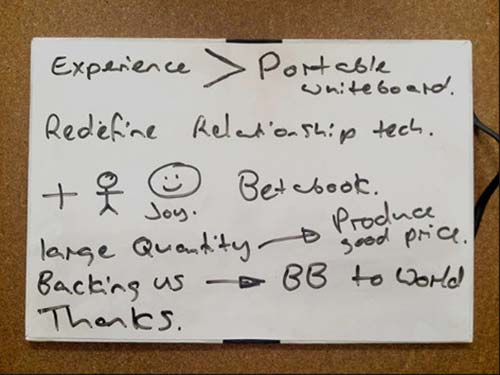 Experience > Portable whiteboard.
Redefine Relationship tech.
+ Joy. Betabook.
large Quantity → Produce good price.
Backing us → BB to World
Thanks.